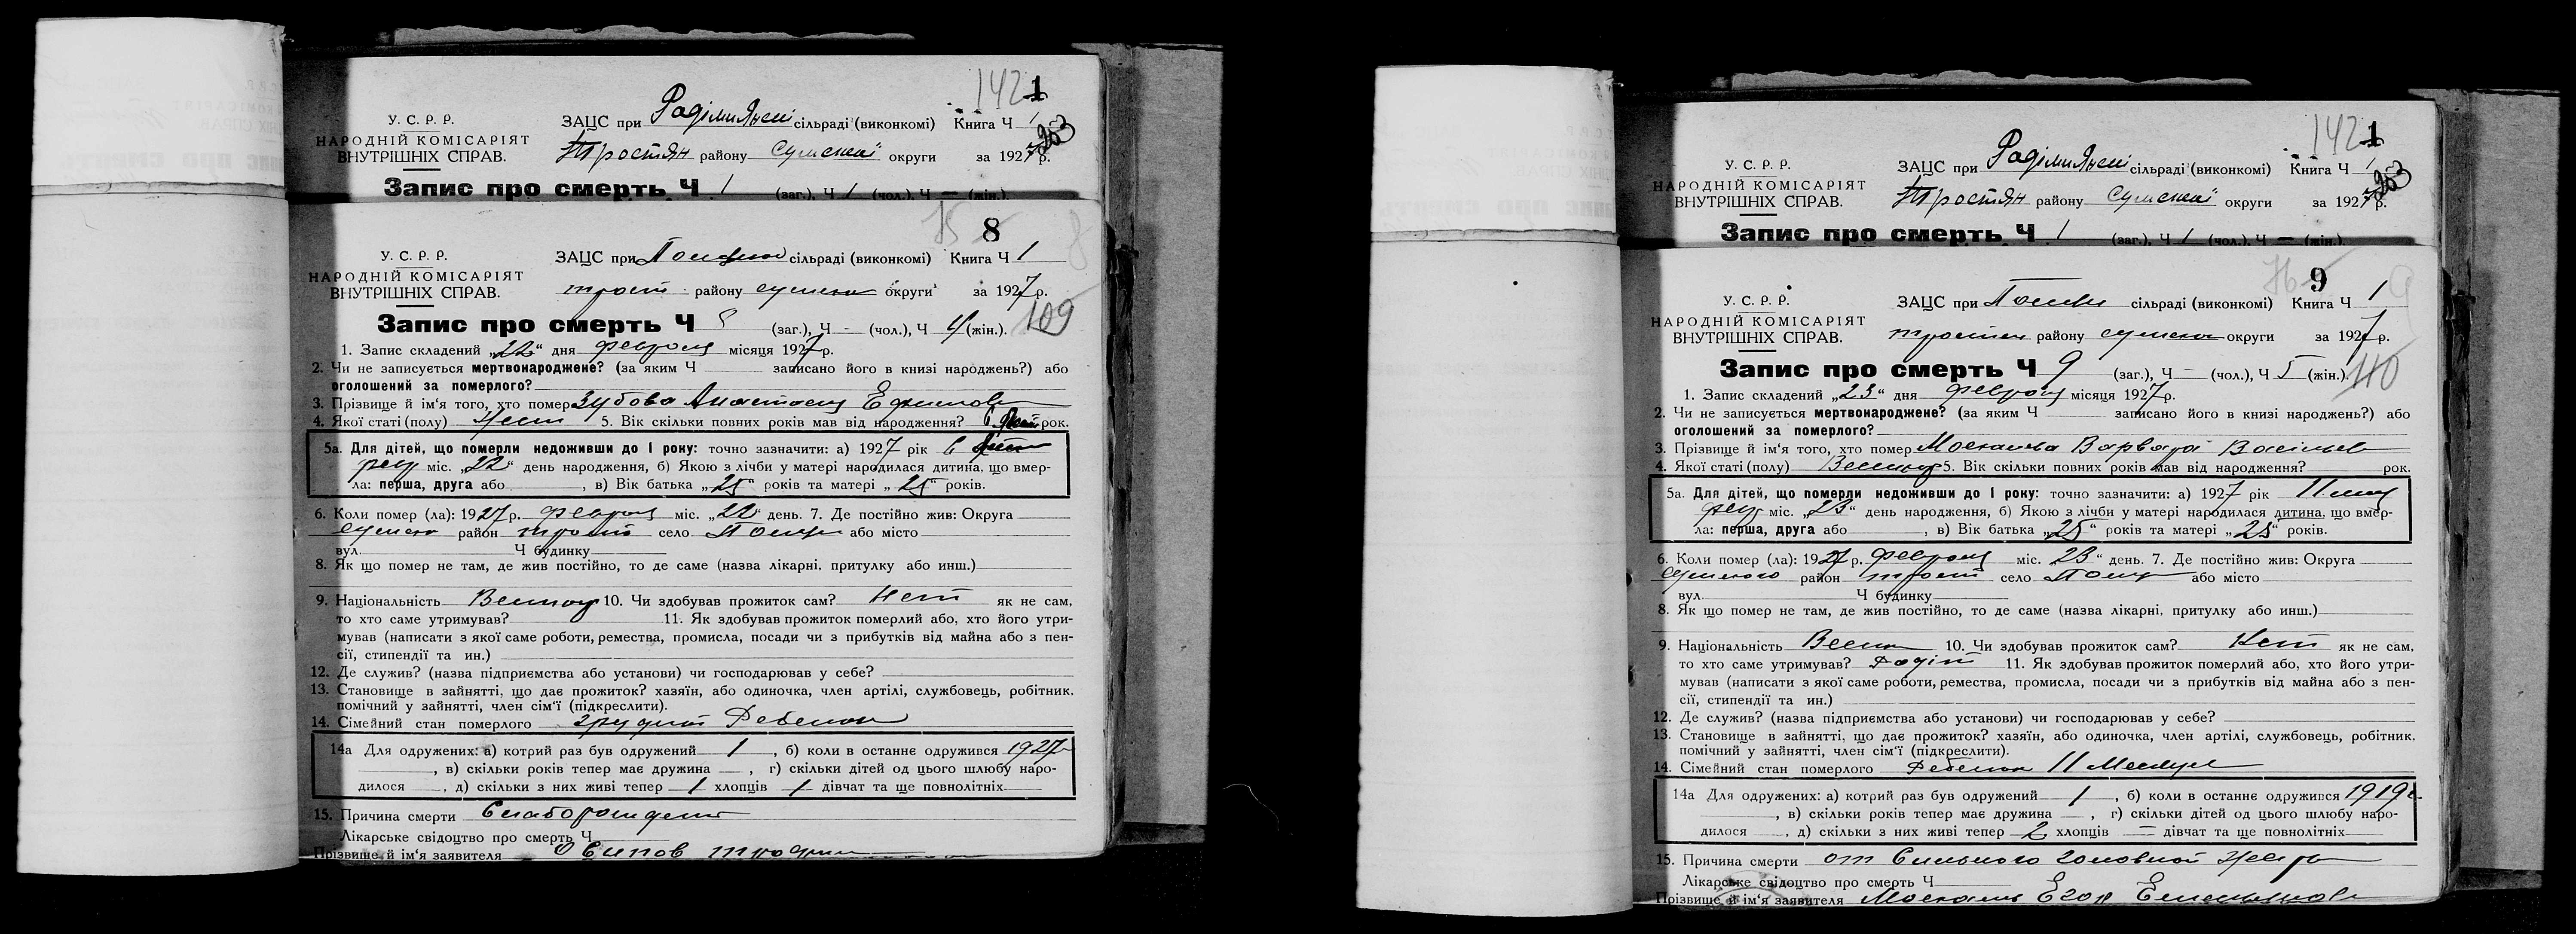 142 1
У. С. Р. Р.
НАРОДНІЙ КОМІСАРІЯТ
ВНУТРІШНІХ СПРАВ.
ЗАЦС при сільраді (виконкомі) Книга Ч 1
Тростян району Сумської округи за 1927 р.
203
Запис про смерть Ч 1 (заг.), Ч 1 (чол.), Ч — (жін.).
75 8 8
У. С. Р. Р.
НАРОДНІЙ КОМІСАРІЯТ
ВНУТРІШНІХ СПРАВ.
ЗАЦС при сільраді (виконкомі) Книга Ч 1
трост району сумск округи за 1927 р.
109
Запис про смерть Ч 8 (заг.), Ч - (чол.), Ч 4 (жін.).
1. Запис складений „22“ дня февраля місяця 1927 р.
2. Чи не записується мертвонароджене? (за яким Ч записано його в книзі народжень?) або
оголошений за померлого?
3. Прізвище й ім'я того, хто помер Зубова Анастасия Ефимов
4. Якої статі (полу) жен 5. Вік скільки повних років мав від народження? 6 рок.
5а. Для дітей, що померли недоживши до 1 року: точно зазначити: а) 1927 рік 6
міс. „22“ день народження, б) Якою з лічби у матері народилася дитина, що вмер-
ла: перша, друга або , в) Вік батька „25“ років та матері „25“ років.
6. Коли помер (ла): 1927 р. февраля міс. „22“ день. 7. Де постійно жив: Округа
сумско район трост село або місто
вул. Ч будинку
8. Як що помер не там, де жив постійно, то де саме (назва лікарні, притулку або инш.)
9. Національність 10. Чи здобував прожиток сам? нет як не сам,
то хто саме утримував? 11. Як здобував прожиток померлий або, хто його утри-
мував (написати з якої саме роботи, ремества, промисла, посади чи з прибутків від майна або з пен-
сії, стипендії та ин.)
12. Де служив? (назва підприємства або установи) чи господарював у себе?
13. Становище в зайнятті, що дає прожиток? хазяїн, або одиночка, член артілі, службовець, робітник,
помічний у зайнятті, член сім'ї (підкреслити).
14. Сімейний стан померлого грудной Ребенок
14а Для одружених: а) котрий раз був одружений 1, б) коли в останнє одружився 1927
, в) скільки років тепер має дружина — , г) скільки дітей од цього шлюбу наро-
дилося , д) скільки з них живі тепер 1 хлопців 1 дівчат та ще повнолітніх
15. Причина смерти Слаборожден
Лікарське свідоцтво про смерть Ч
Прізвище й ім'я заявителя Осипов трофим
142 1
У. С. Р. Р.
НАРОДНІЙ КОМІСАРІЯТ
ВНУТРІШНІХ СПРАВ.
ЗАЦС при сільраді (виконкомі) Книга Ч 1
Тростян району Сумської округи за 1927 р.
203
Запис про смерть Ч 1 (заг.), Ч 1 (чол.), Ч — (жін.).
76 9 9
У. С. Р. Р.
НАРОДНІЙ КОМІСАРІЯТ
ВНУТРІШНІХ СПРАВ.
ЗАЦС при сільраді (виконкомі) Книга Ч 1
тростян району сумско округи за 1927 р.
110
Запис про смерть Ч 9 (заг.), Ч - (чол.), Ч 5 (жін.).
1. Запис складений „23“ дня февраля місяця 1927 р.
2. Чи не записується мертвонароджене? (за яким Ч записано його в книзі народжень?) або
оголошений за померлого?
3. Прізвище й ім'я того, хто помер Москалева Варвара Васильев
4. Якої статі (полу) 5. Вік скільки повних років мав від народження? рок.
5а. Для дітей, що померли недоживши до 1 року: точно зазначити: а) 1927 рік 11 мец
міс. „23“ день народження, б) Якою з лічби у матері народилася дитина, що вмер-
ла: перша, друга або , в) Вік батька „25“ років та матері „25“ років.
6. Коли помер (ла): 1927 р. февраля міс. 23“ день. 7. Де постійно жив: Округа
сумского район трост село або місто
вул. Ч будинку
8. Як що помер не там, де жив постійно, то де саме (назва лікарні, притулку або инш.)
9. Національність 10. Чи здобував прожиток сам? нет як не сам,
то хто саме утримував? 11. Як здобував прожиток померлий або, хто його утри-
мував (написати з якої саме роботи, ремества, промисла, посади чи з прибутків від майна або з пен-
сії, стипендії та ин.)
12. Де служив? (назва підприємства або установи) чи господарював у себе?
13. Становище в зайнятті, що дає прожиток? хазяїн, або одиночка, член артілі, службовець, робітник,
помічний у зайнятті, член сім'ї (підкреслити).
14. Сімейний стан померлого Ребенок 11 Месяцев
14а Для одружених: а) котрий раз був одружений 1, б) коли в останнє одружився 1919
, в) скільки років тепер має дружина — , г) скільки дітей од цього шлюбу наро-
дилося , д) скільки з них живі тепер 2 хлопців — дівчат та ще повнолітніх
15. Причина смерти от Сильного головной
Лікарське свідоцтво про смерть Ч
Прізвище й ім'я заявителя Москаль Егор Емельянов